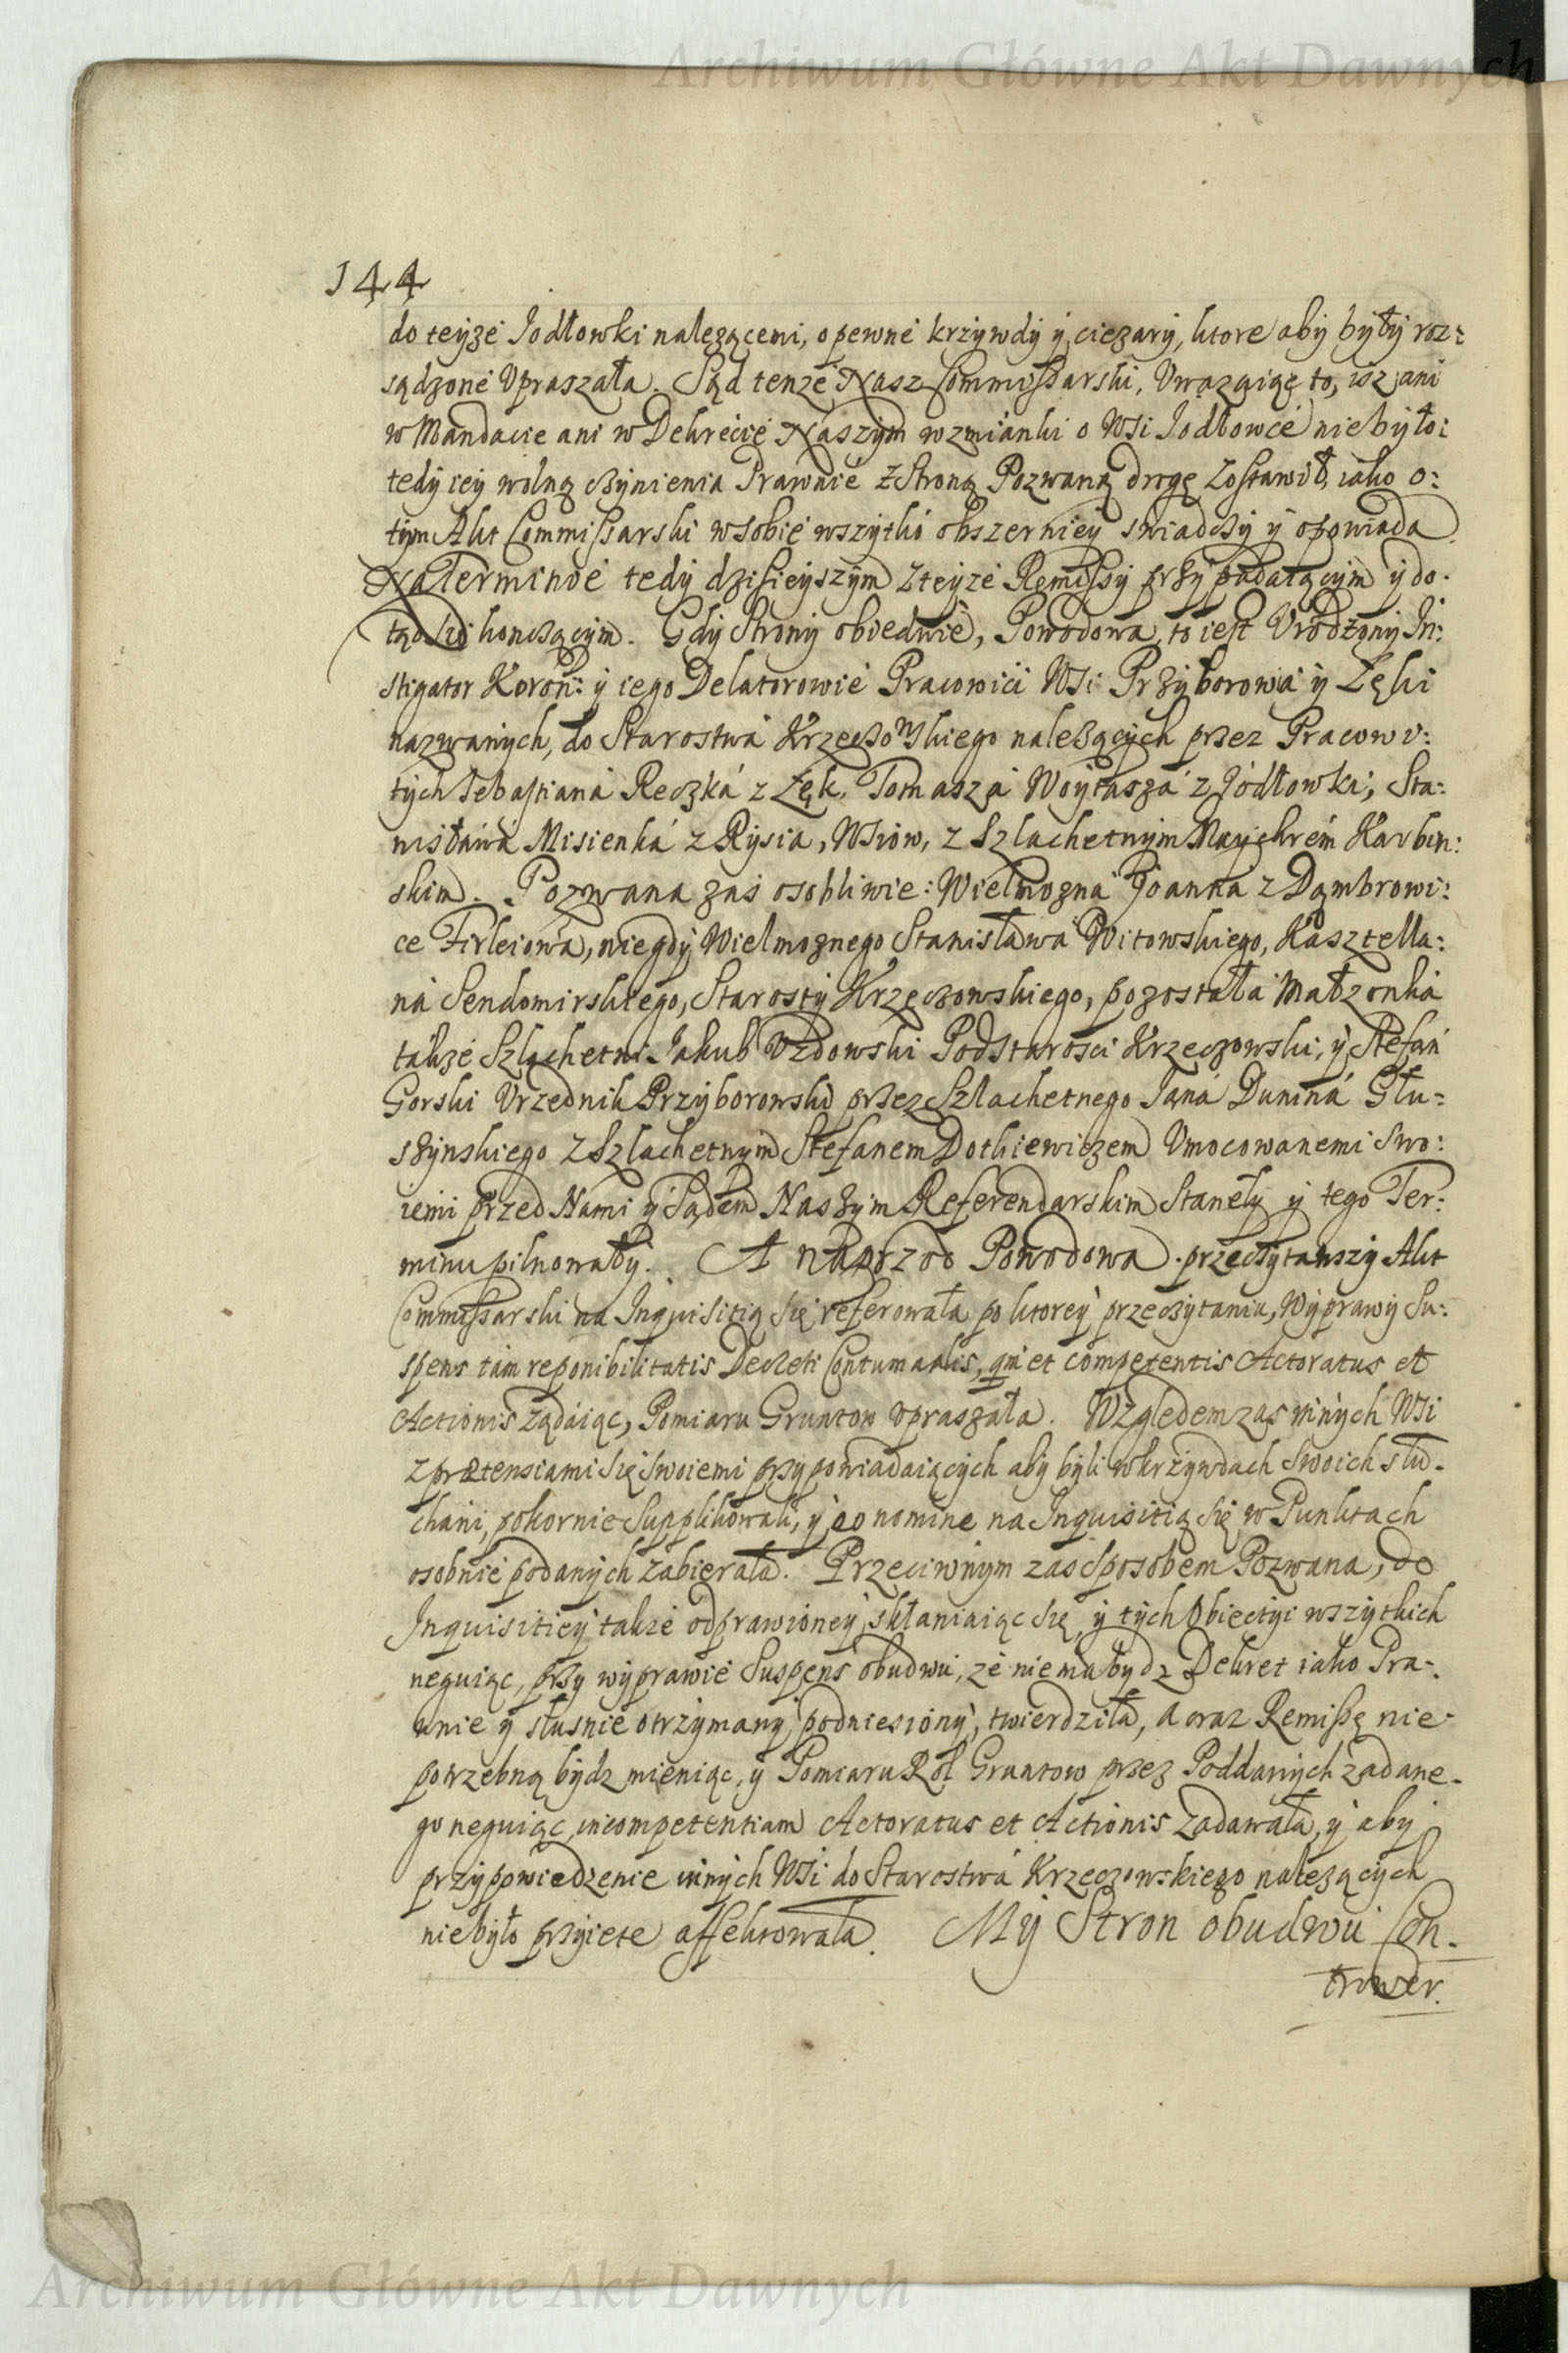 Archiwum Główne Akt Dawnych
144
do teyże Jodłowki należącemi, o pewne krzywdy y ciężary, ktore aby były roz:
sądzone Vpraszała. Sąd tenże Nasz Commissarski, Vważaiąc to, isz ani
w Mandacie ani w Dekrecie Naszym wzmianki o Wsi Jodłowce nie było:
tedy iey wolną czynienia Prawnie z Stroną Pozwaną drogę zostawił, iako o:
tym Akt Commissarski w sobie wszytko obszerniey swiadczy y opowiada.
Na Terminie tedy dzisieyszym z teyże Remissy przypadaiącym y do:
tąd się kończącym. Gdy Strony obiedwie, Powodowa, to iest Vrodzony In:
stigator Koron: y iego Delatorowie Pracowici Wsi Przyborowia y Łęki
nazwanych, do Starostwa Krzeczowskiego należących przez Pracowi:
tych Sebastiana Reczka z Łęk, Tomasza Woytasza z Jodłowki, Sta:
nisława Misienka z Rysia, Wsiow, z Szlachetnym Maychrem Karbin:
skim. Pozwana zaś osobliwie: Wielmożna Joanna z Dąmbrowi:
ce Firleiowa, niegdy Wielmożnego Stanisława Witowskiego, Kasztella:
na Sendomirskiego, Starosty Krzeczowskiego, pozostała Małżonka
także Szlachetni Jakub Vzdowski Podstarosci Krzeczowski, y Stefan
Gorski Vrzednik Przyborowski przez Szlachetnego Jana Dunina Głu:
szynskiego z Szlachetnym Stefanem Dotkiewiczem Vmocowanemi swo:
iemi przed Nami y Sądem Naszym Referendarskim Stanęły y tego Ter:
minu pilnowały. A naprzod Powodowa przeczytawszy Akt
Commissarski na Inquisitią się referowała po ktorey przeczytaniu, Wyprawy Su:
spens tam reponibilitatis Decreti Contumatis, qm et competentis Actoratus et
Actionis żądaiąc, Pomiaru Gruntow vpraszała. Względem zaś innych Wsi
z prætensiami się swoiemi przypowiadaiących aby byli w krzywdach swoich słu:
chani, pokornie Supplikowali, y eo nomine na Inquisitią się w Punktach
osobnie podanych zabierała. Przeciwnym zaś sposobem Pozwana, do
Inquisitiey także odprawioney, skłaniaiąc się, y tych Obiectyi wszytkich
neguiąc, przy wyprawie Suspens obudwu, że nie ma bydz Dekret iako Pra:
wnie y słusnie otrzymany, podniesiony, twierdziła, a oraz Remissę nie:
potrzebną bydz mieniąc, y Pomiaru Rol Gruntow przez Poddanych zadane:
go neguiąc, incompetentiam Actoratus et Actionis zadawała, y aby
przypowiedzenie innych Wsi do Starostwa Krzeczowskiego należących
nie było przyięte affektowała. My Stron obudwu Con:
trower.
Archiwum Główne Akt Dawnych